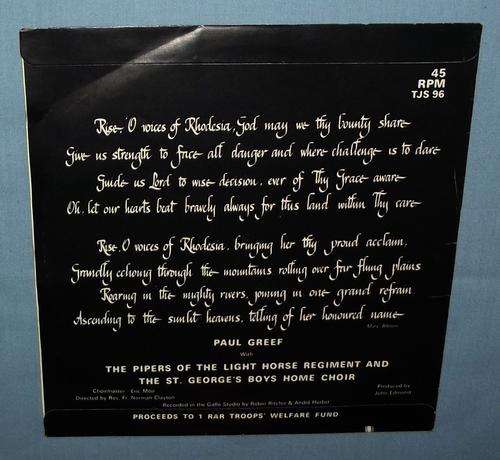 45
RPM
TJS 96
Rise, O voices of Rhodesia, God may we thy bounty share
Give us strength to face all danger and where challenge is to dare
Guide us Lord to wise decision, ever of Thy Grace aware
Oh, let our hearts beat bravely always for this land within Thy care
Rise, O voices of Rhodesia, bringing her thy proud acclaim,
Grandly echoing through the mountains rolling over far flung plains
Roaring in the mighty rivers, joining in one grand refrain
Ascending to the sunlit heavens, telling of her honoured name
Mary Bloom
PAUL GREEF
With
THE PIPERS OF THE LIGHT HORSE REGIMENT AND
THE ST. GEORGE'S BOYS HOME CHOIR
Choirmaster: Eric May
Directed by Rev. Fr. Norman Clayton
Produced by
John Edmond
Recorded in the Gallo Studio by Robin Ritchie & André
PROCEEDS TO 1 RAR TROOPS' WELFARE FUND